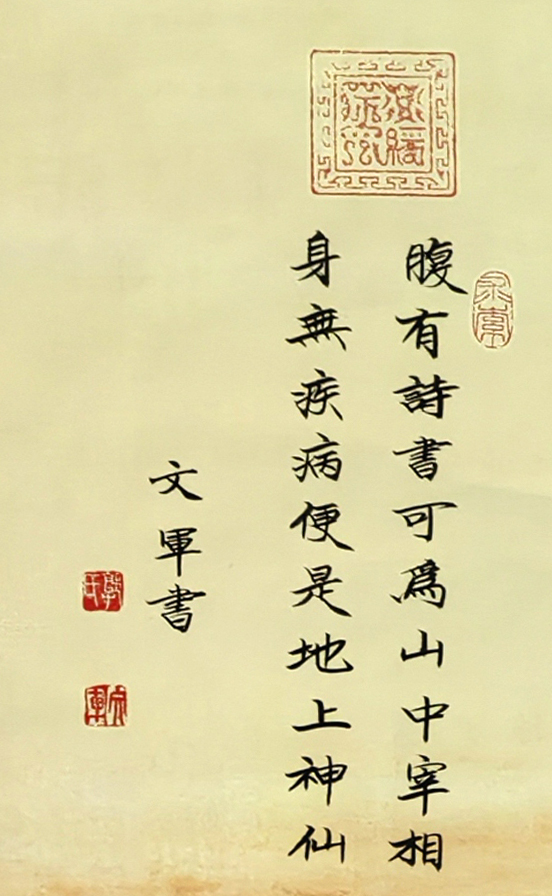 腹有詩書可爲山中宰相
身無疾病便是地上神仙
文軍書